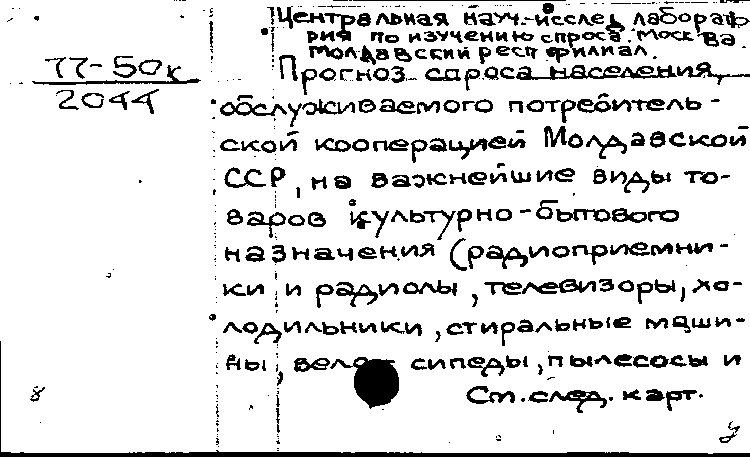 Центральная науч.-исслед лаборато
рия по изучению спроса. Москва.
Молдавский респ филиал.
77-50к
2044
Прогноз спроса населения,
обслуживаемого потребитель-
ской кооперацией Молдавской
ССР, на важнейшие виды то-
варов культурно-бытового
назначения (радиоприемни-
ки и радиолы, телевизоры, хо-
лодильники, стиральные маши-
ны, вело- сипеды, пылесосы и
См. след. карт.
8
у